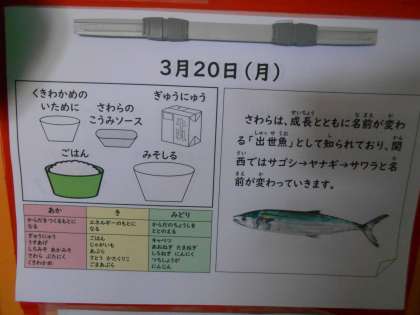 3月20日（月）
くきわかめの
いために
さわらの
こうみソース
ぎゅうにゅう
ごはん
みそしる
さわらは、成長とともに名前が変わ
る「出世魚」として知られており、関
西ではサゴシ→ヤナギ→サワラと名
前が変わっていきます。
せいちょう
なまえ
か
しゅっせうお
し
かん
さい
な
まえ
か
あか
き
みどり
からだをつくるもとに
なる
エネルギーのもとに
なる
からだのちょうしを
ととのえる
ぎゅうにゅう
うすあげ
しろみそ あかみそ
さわら ぶたにく
くきわかめ
ごはん
じゃがいも
あぶら
さとう かたくりこ
ごまあぶら
キャベツ
あおねぎ たまねぎ
しろねぎ にんにく
つちしょうが
にんじん